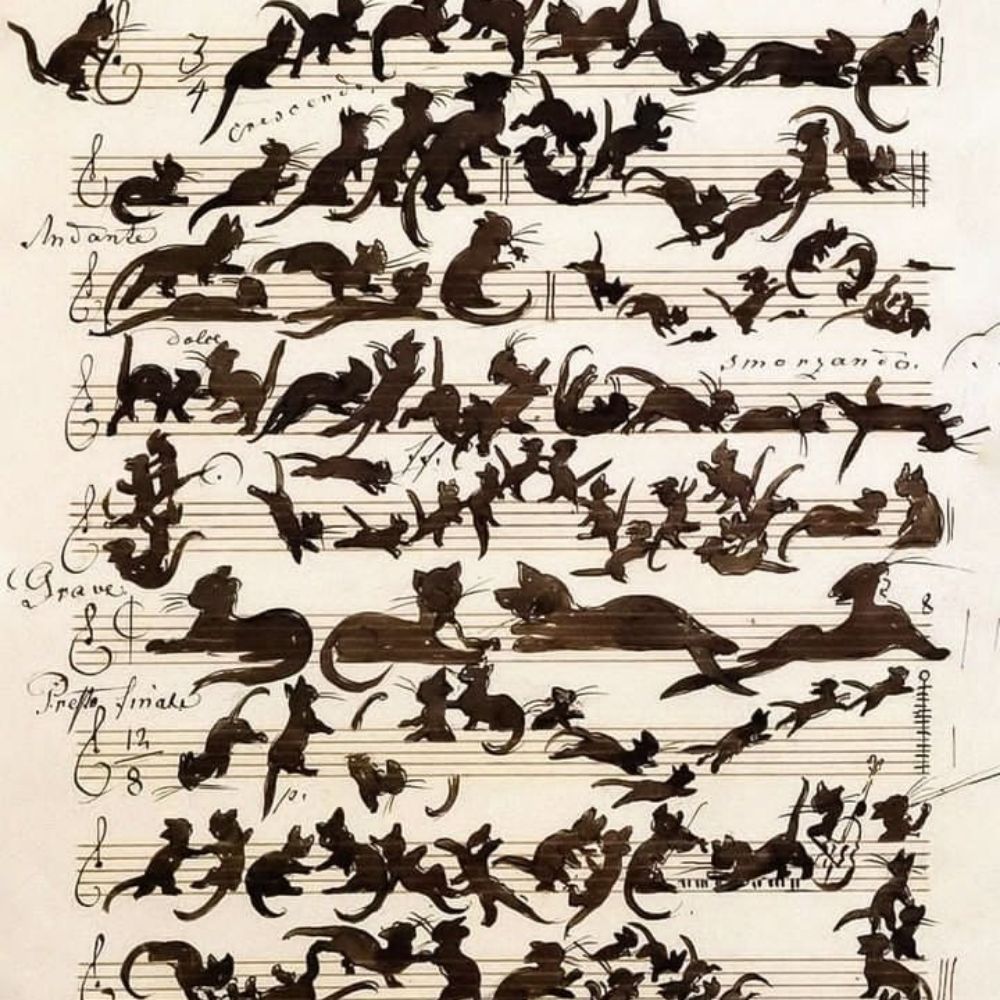 3
4
Crescendo.
Andante
dolce
smorzando.
ff.
Grave.
8
Presto finale
12
8
p.